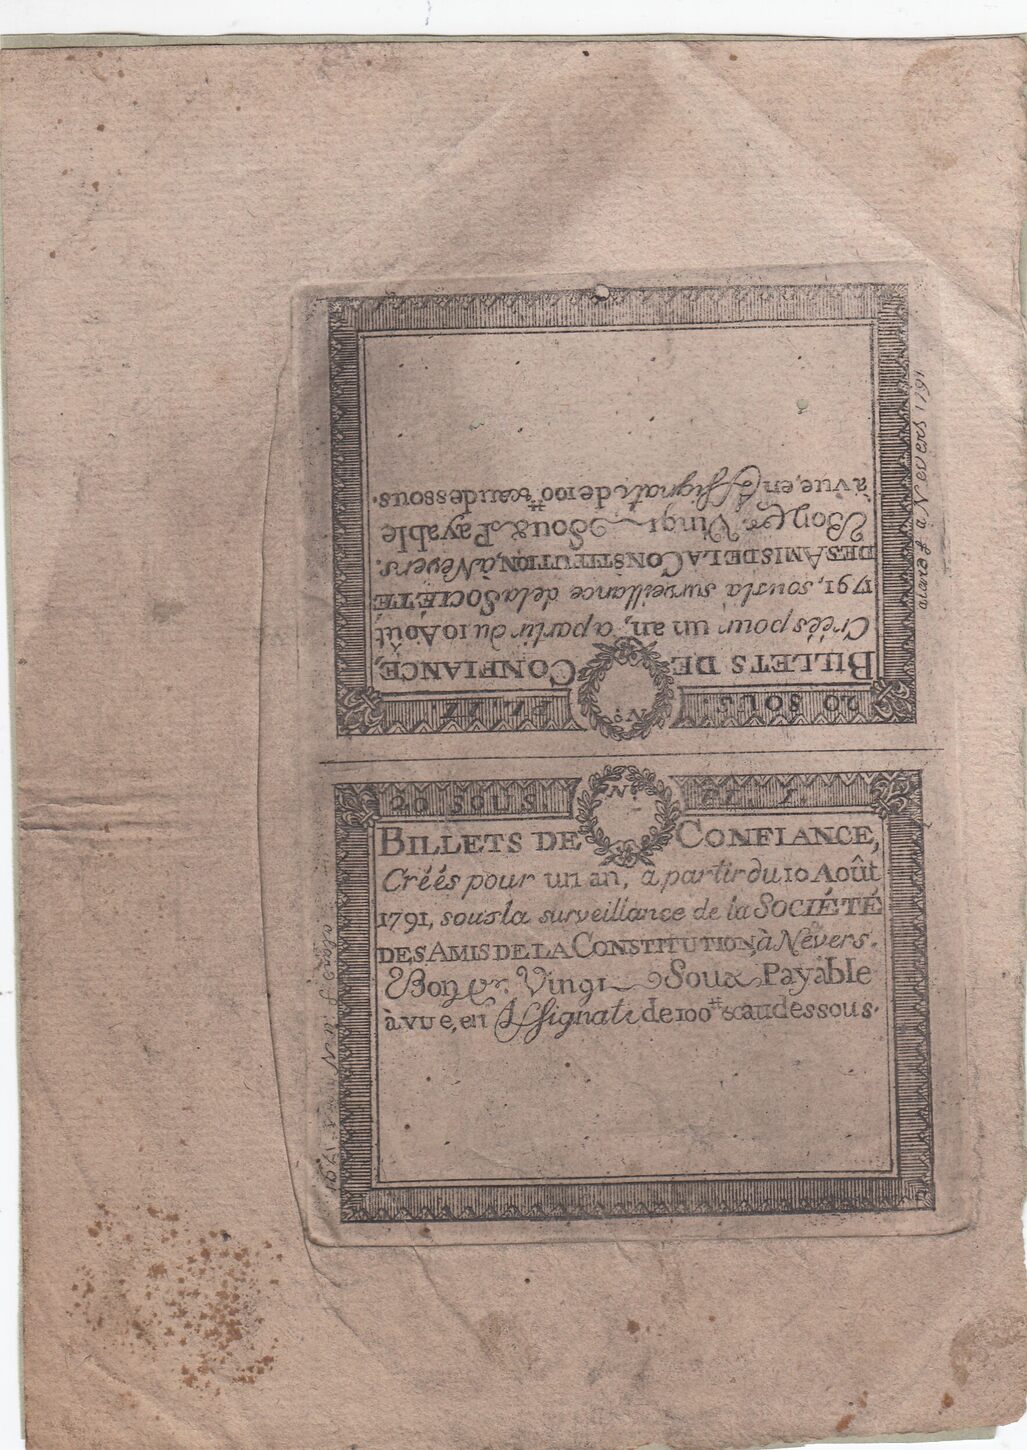 20 SOUS. Nº. PL. II
BILLETS DE CONFIANCE,
Créés pour un an, a partir du 10 Août
1791, sous la surveillance de la SOCIÉTÉ
DES AMIS DE LA CONSTITUTION, à Nevers.
Bon Vingt Sous Payable
à vue, en Assignats de 100ᵗᵗ & audessous.
a Nevers 1791
20 SOUS. Nº. PL. I.
BILLETS DE CONFIANCE,
Créés pour un an, a partir du 10 Août
1791, sous la surveillance de la SOCIÉTÉ
DES AMIS DE LA CONSTITUTION, à Nevers.
Bon Vingt Sous Payable
à vue, en Assignats de 100ᵗᵗ & audessous.
1791